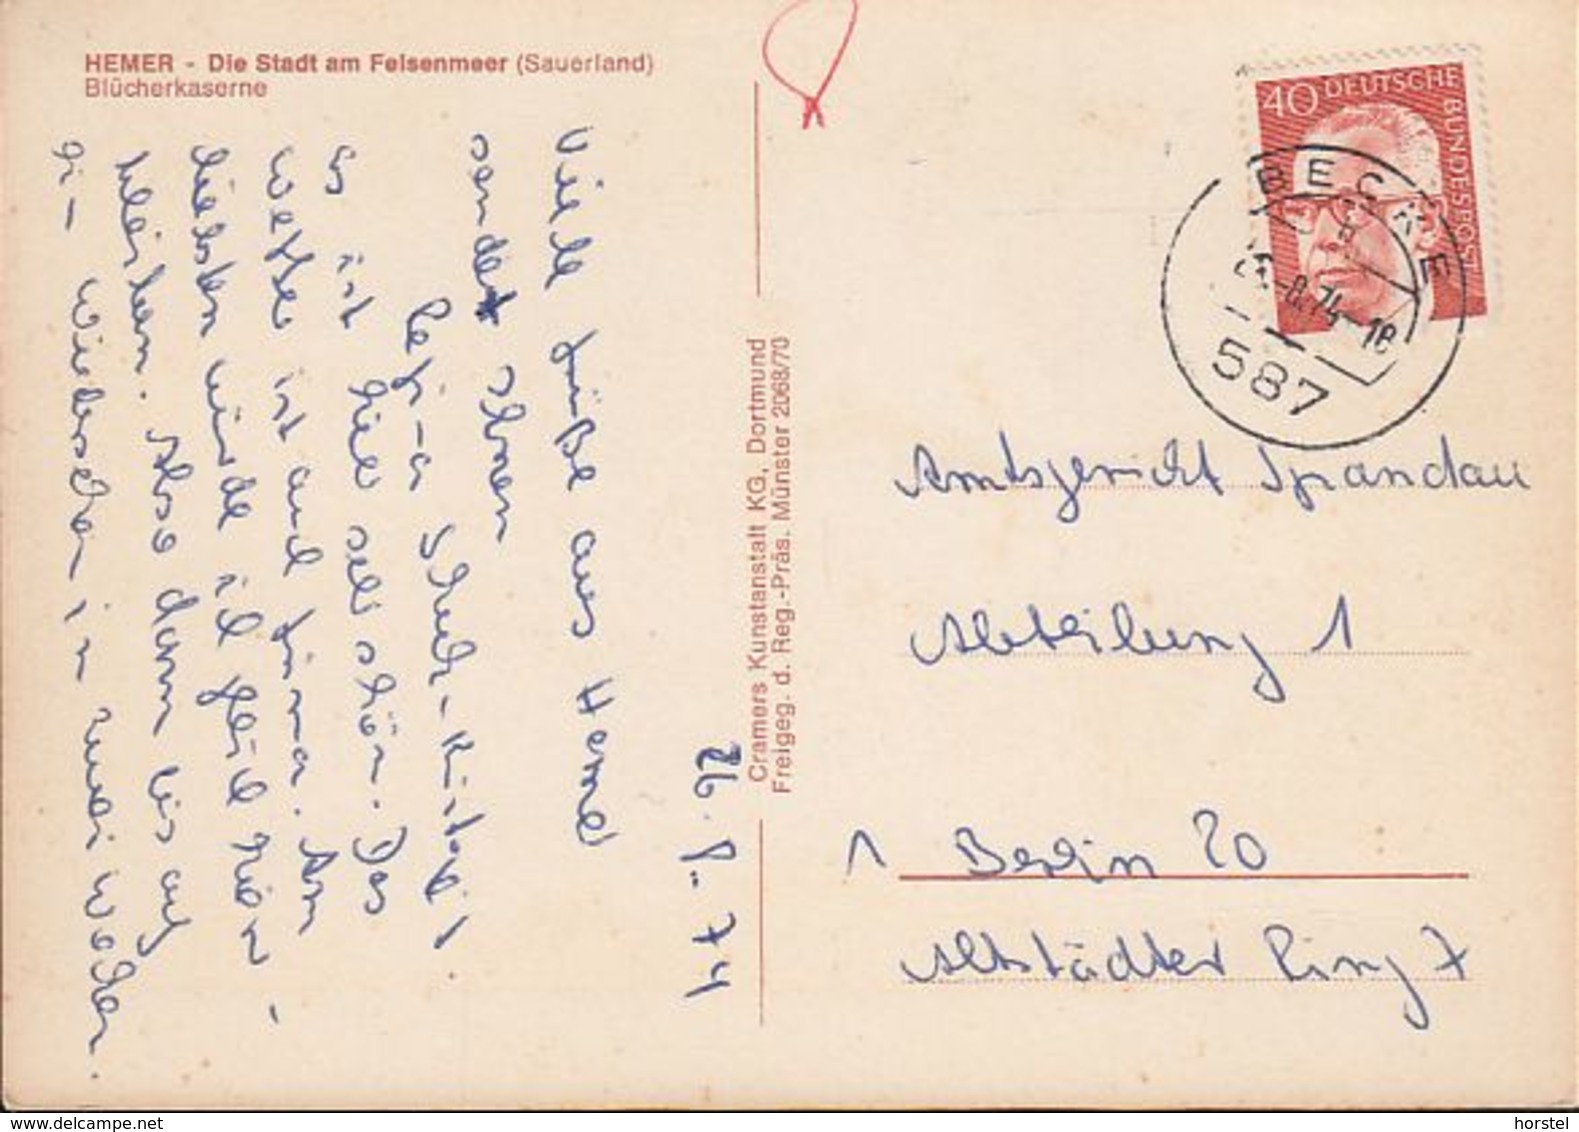 HEMER - Die Stadt am Felsenmeer (Sauerland)
Blücherkaserne
26. 8. 74
Viele Grüße aus Hemer
sendet Ihnen
Es ist hier sehr schön. Das
Wetter ist auch prima. Am
liebsten würde ich gleich hier
bleiben. Also dann bis auf
Wiedersehen in zwei Wochen.
Cramers Kunstanstalt KG, Dortmund
Freigeg. d. Reg.-Präs. Münster 2068/70
40 DEUTSCHE BUNDESPOST
BECKE
-8.74-18
587
Amtsgericht Spandau
Abteilung 1
1 Berlin 20
Altstädter Ring 7
delcampe.net
horstel